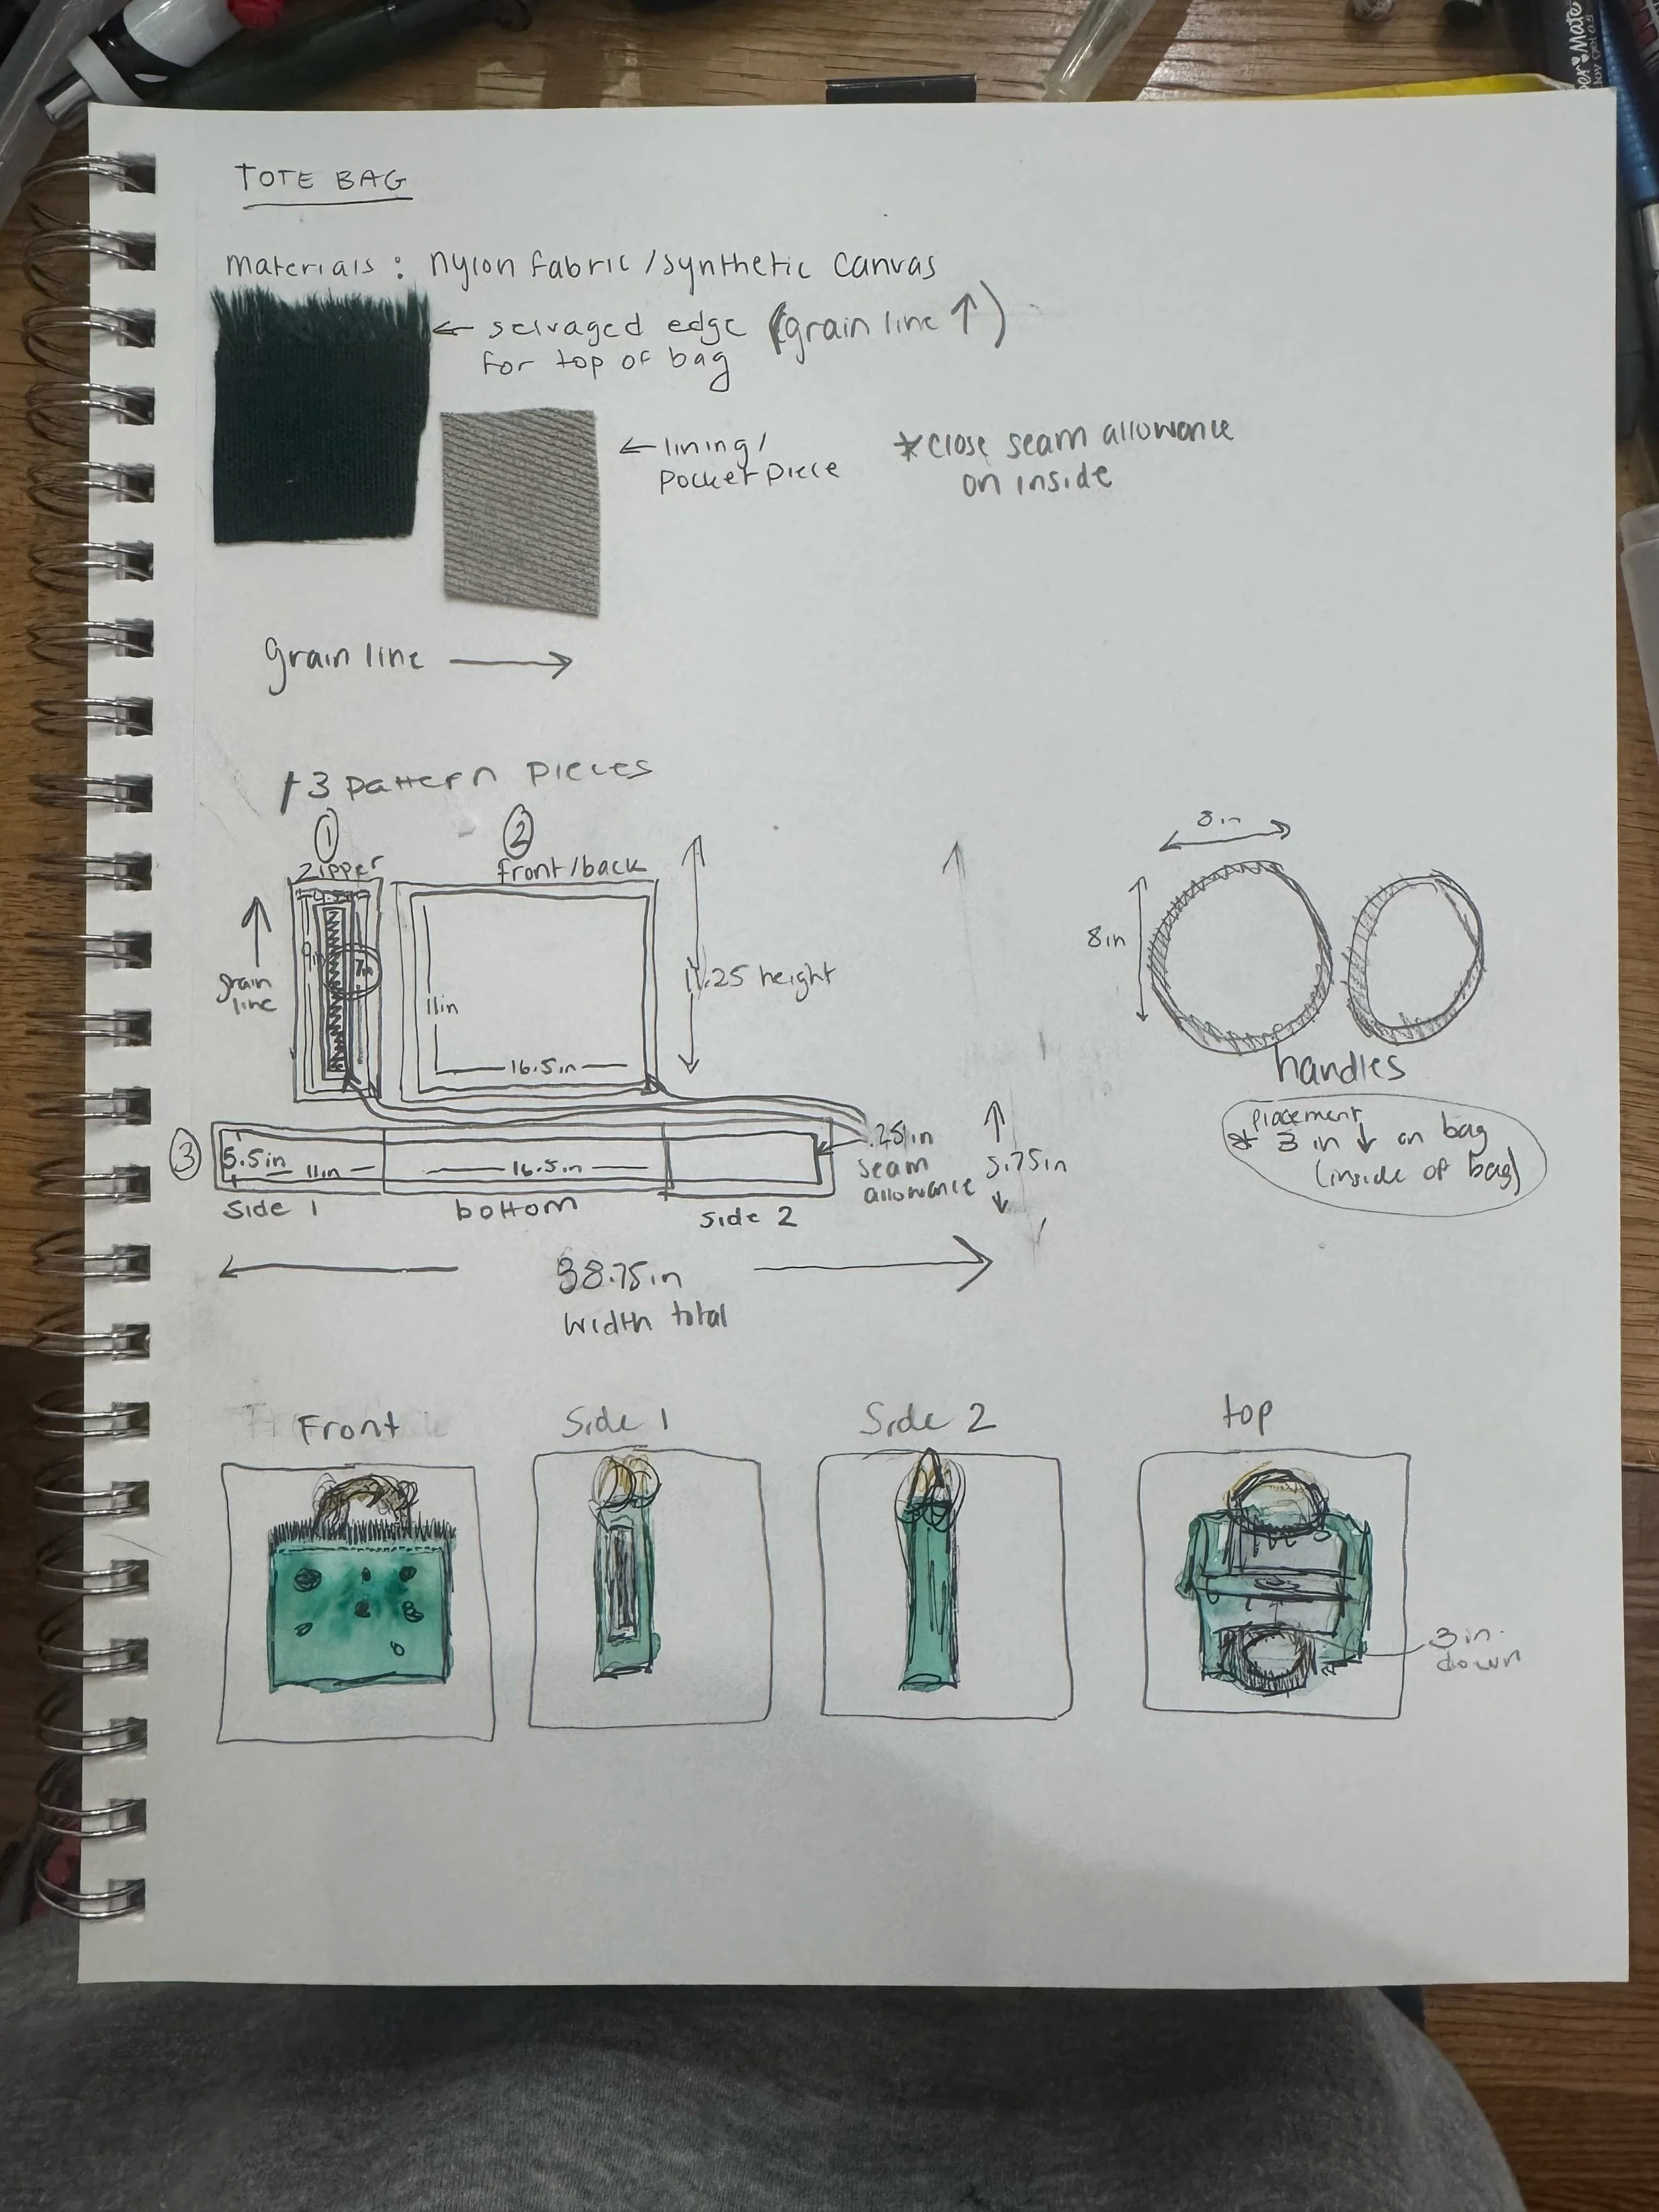 TOTE BAG
materials: nylon fabric/synthetic canvas
← selvaged edge (grain line ↑)
for top of bag
← lining/
pocket piece
*close seam allowance
on inside
grain line →
3 pattern pieces
① ②
zipper front/back
grain
line
9in
7in
11in
16.5in
11.25 height
8in
8in
handles
placement
* 3 in ↓ on bag
(inside of bag)
③
5.5in 11in 16.5in
.25in
seam
allowance
5.75in
side 1 bottom side 2
38.75in
width total
Front Side 1 Side 2 top
3 in.
down